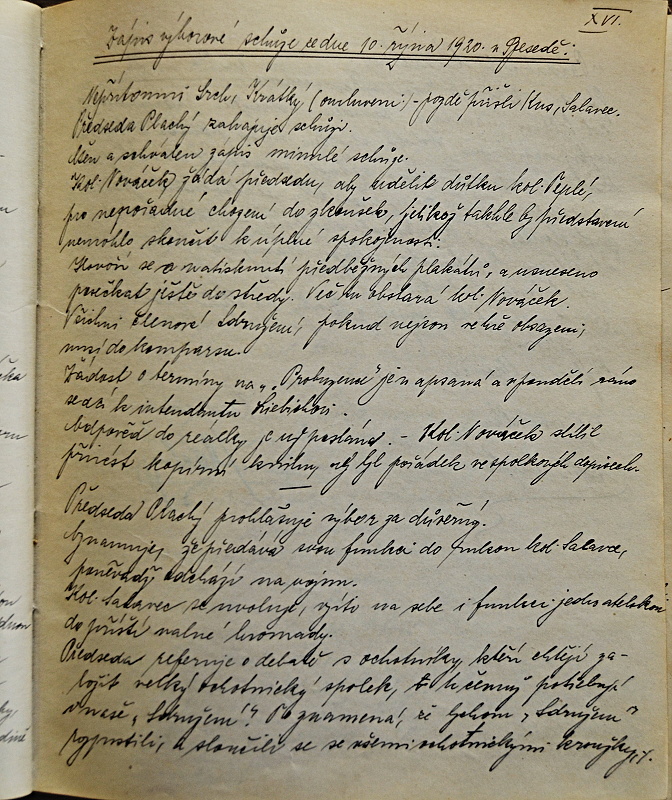 XVI.
Zápis výborové schůze ze dne 10. října 1920. v Besedě:
Nepřítomni Srch, Krátký (omluveni) - pozdě přišli Kus, Salavec.
Předseda Plachý zahajuje schůzi.
Čten a schválen zápis minulé schůze.
Kol. Nováček žádá předsedu, aby udělil důtku kol. Teplé,
pro nepořádné chození do zkoušek, jelikož takhle by představení
nemohlo skončit k úplné spokojnosti.
Hovoří se o natisknutí předběžných plakátů, a usneseno
posečkat ještě do středy. Věc tu obstará kol. Nováček.
Všichni členové Sdružení, pokud nejsou ve hře obsazeni,
musí do komparsu.
Žádost o termíny na „Probuzence" je napsaná a v pondělí ráno
se dá k intendantu
Odpověď do reálky je už poslána. - Kol. Nováček slíbil
přinést kopírní knihu, aby byl pořádek ve spolkových dopisech.
Předseda Plachý prohlašuje výbor za důvěrný.
Oznamuje, že předává svou funkci do rukou kol. Salavce,
poněvadž odchází na vojnu.
Kol. Salavec se uvoluje, vzíti na sebe i funkci jednatelskou
do příští valné hromady.
Předseda referuje o debatě s ochotníky, kteří chtějí za-
ložit velký ochotnický spolek, a k čemuž potřebují
i naše „Sdružení". Poznamenal, že bychom „Sdružení"
rozpustili, a sloučili se se všemi ochotnickými kroužky, v